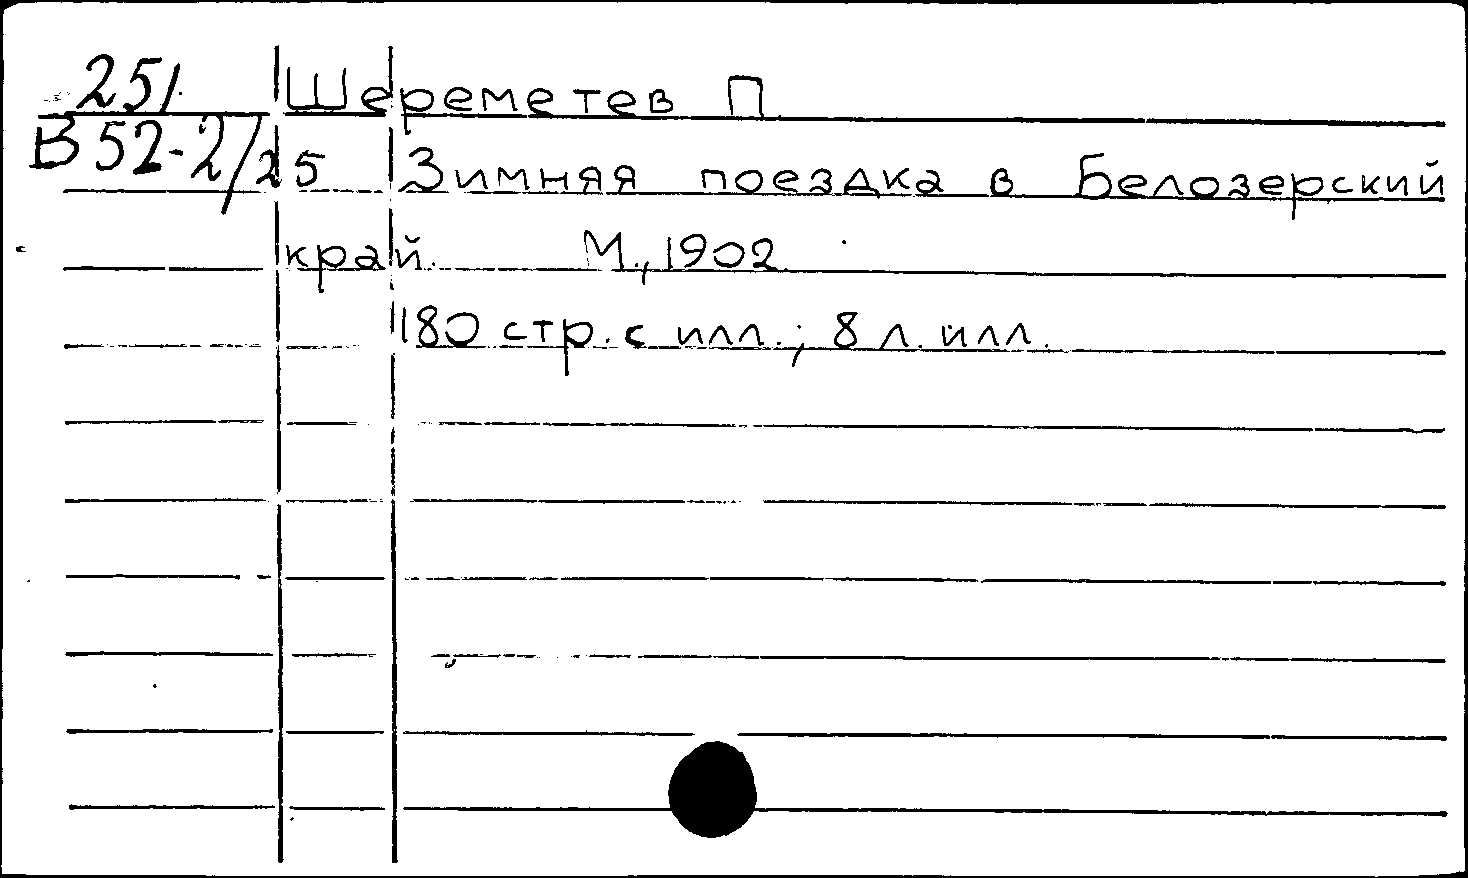 251 Шереметев П
В 52-2/25 Зимняя поездка в Белозерский
край. М., 1902
180 стр. с илл.; 8 л. илл.